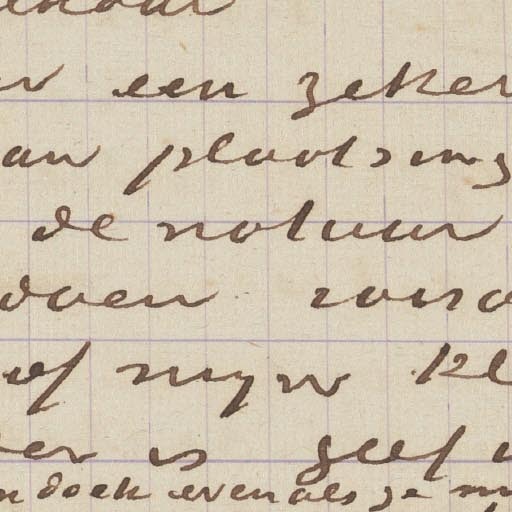 een zeker
plaatsing
de natuur
doen
of mijn kl
er is geef
doek evenals ge